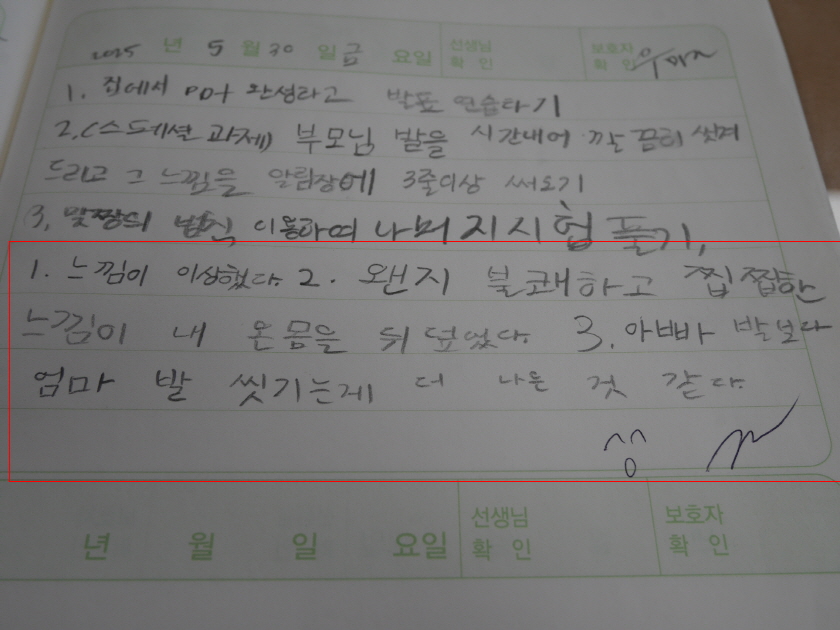 2025 년 5 월 30 일 금 요일 선생님 확 인 보호자 확 인
1. 집에서 ppt 완성하고 발표 연습하기
2. (스페셜 과제) 부모님 발을 시간내어 깨끗이 씻겨
드리고 그 느낌을 알림장에 3줄이상 써오기
3. 이용하여 나머지 시험 풀기,
1. 느낌이 이상했다. 2. 왠지 불쾌하고 찝찝한
느낌이 내 온몸을 뒤 덮었다. 3. 아빠 발보다
엄마 발 씻기는게 더 나은 것 같다.
년 월 일 요일 선생님 확 인 보호자 확 인